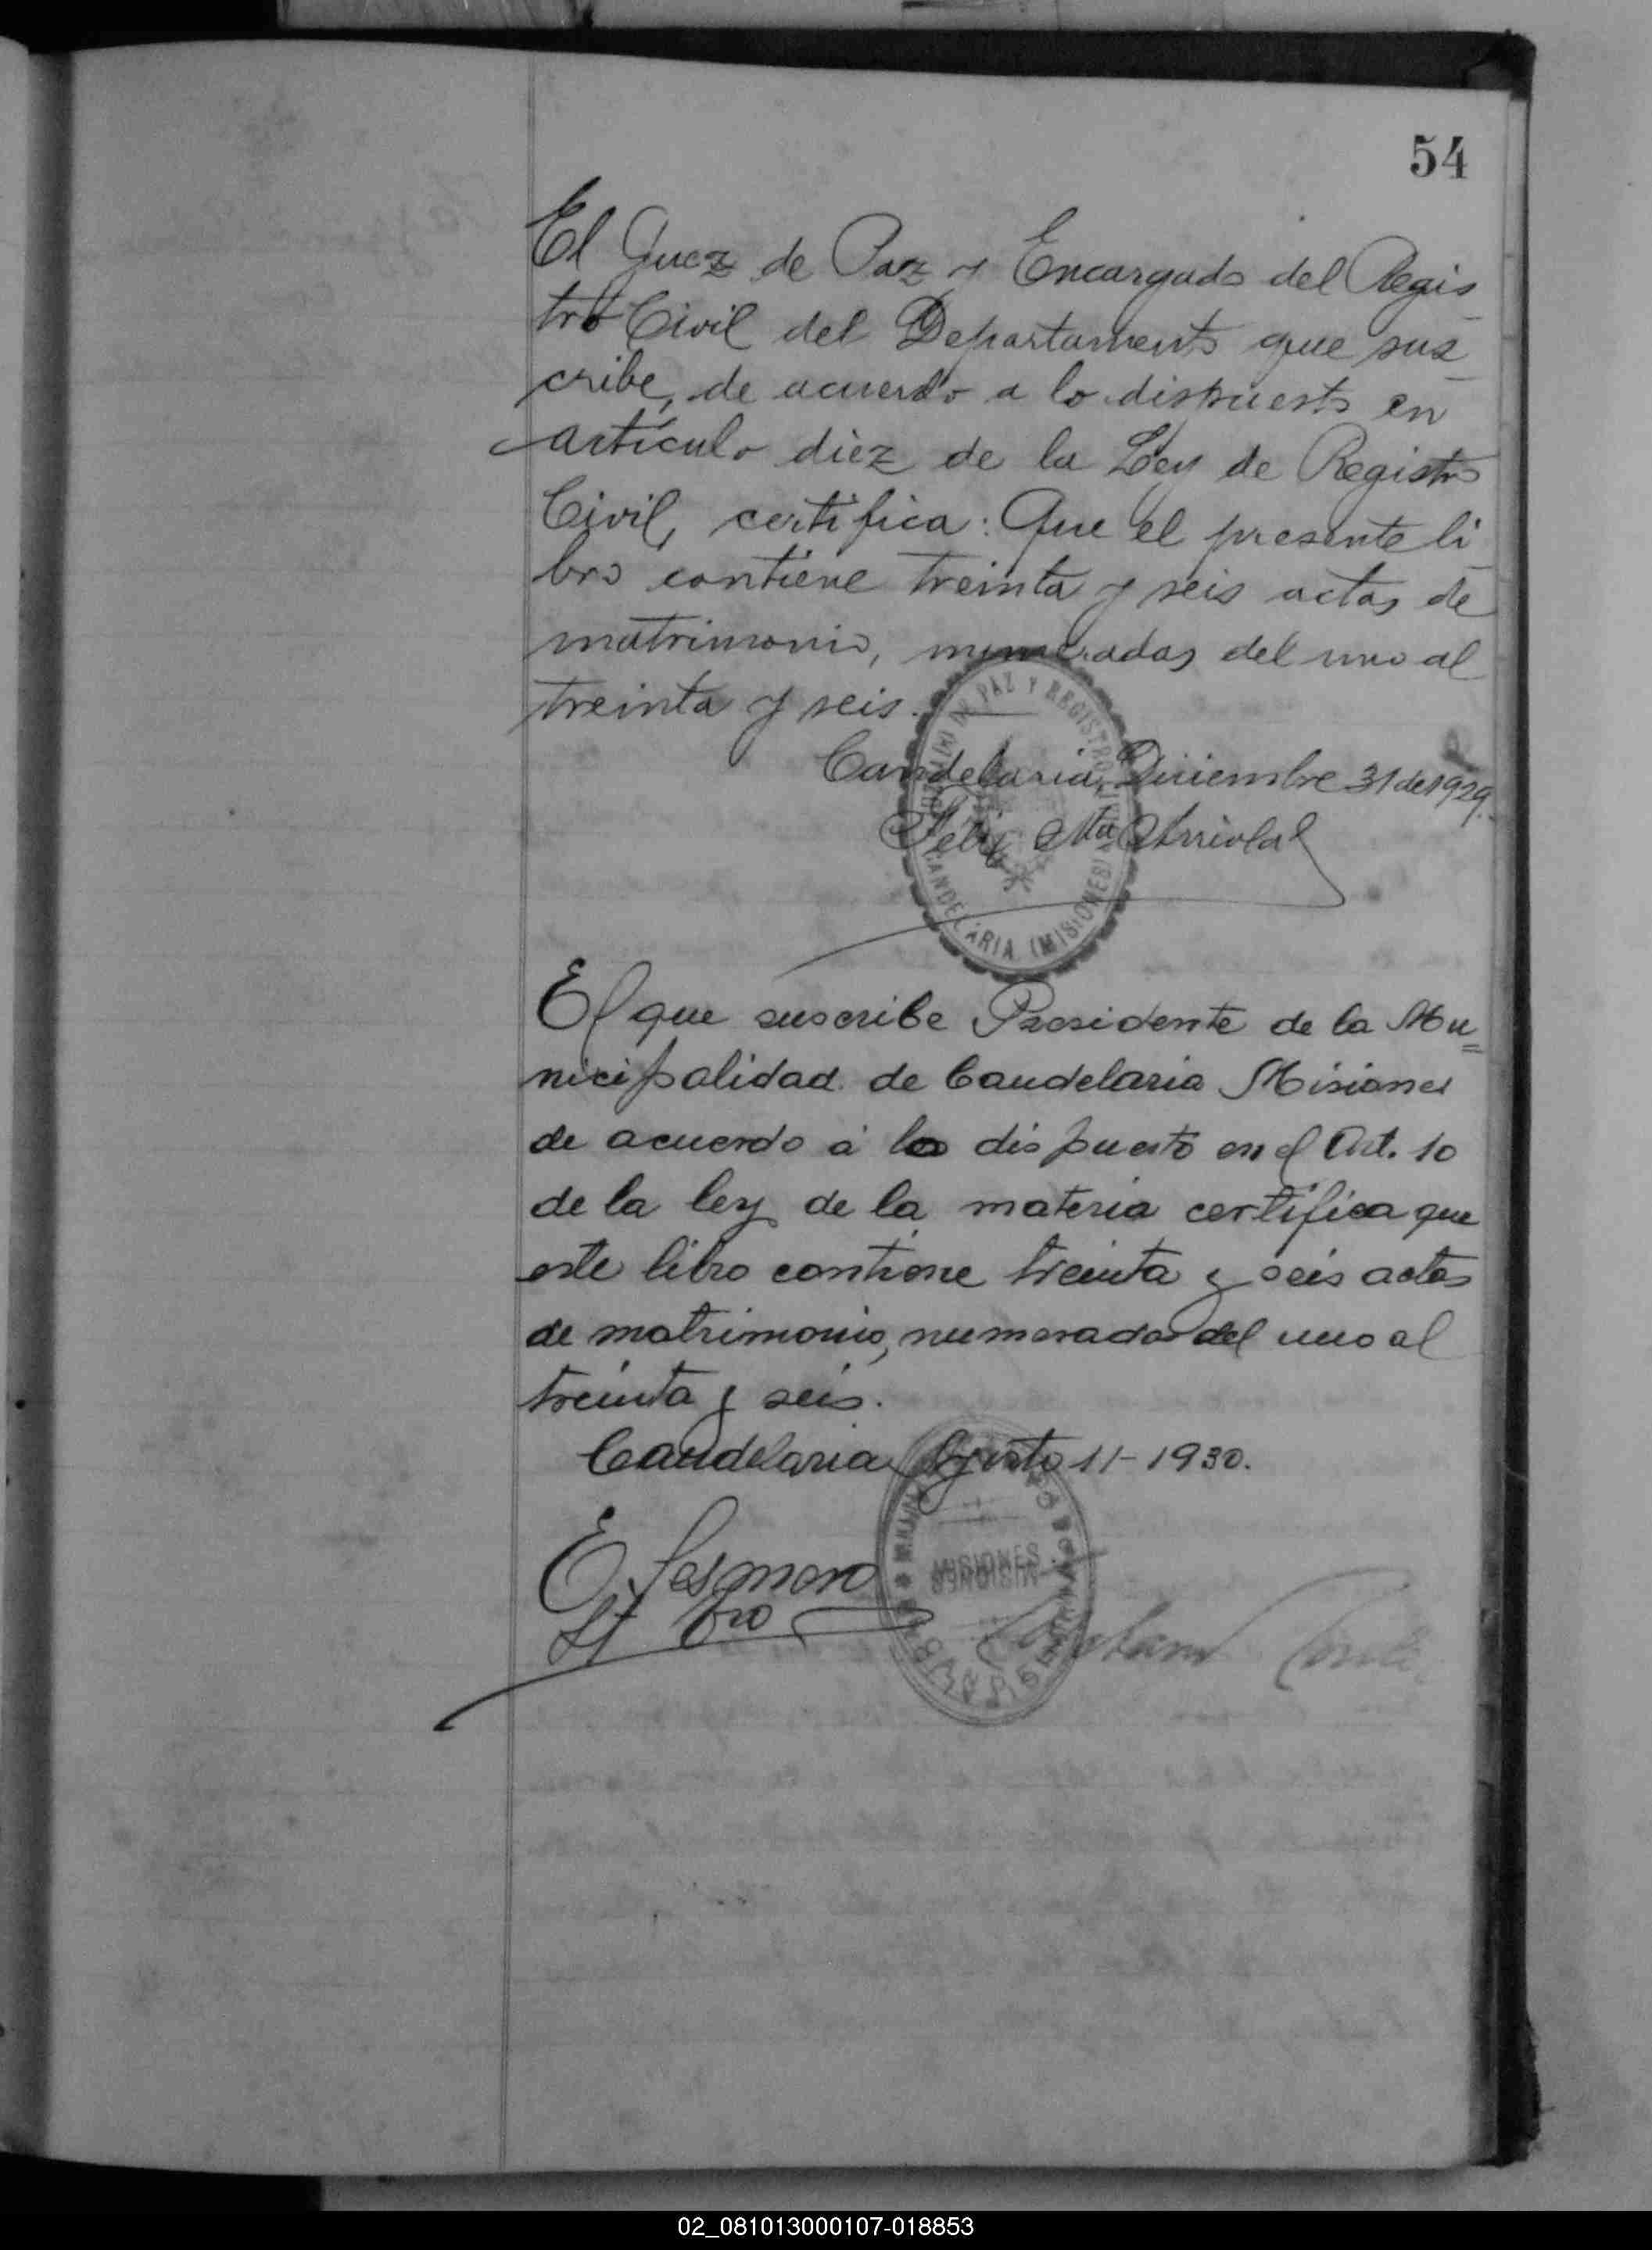 54
El Juez de Paz y Encargado del Regis
tro Civil del Departamento que sus
cribe, de acuerdo a lo dispuesto en
artículo diez de la Ley de Registro
Civil, certifica: Que el presente li
bro contiene treinta y seis actas de
matrimonio, numeradas del uno al
treinta y seis.
JUZGADO DE PAZ Y REGISTRO CIVIL
CANDELARIA (MISIONES)
Candelaria, Diciembre 31 de 1929.
Félix Ma Arriola
El que suscribe Presidente de la Mu=
nicipalidad de Candelaria Misiones
de acuerdo á lo dispuesto en el Art. 10
de la ley de la materia certifica que
este libro contiene treinta y seis actas
de matrimonio, numeradas del uno al
treinta y seis.
Candelaria Agosto 11-1930.
MISIONES
E.
02_081013000107-018853